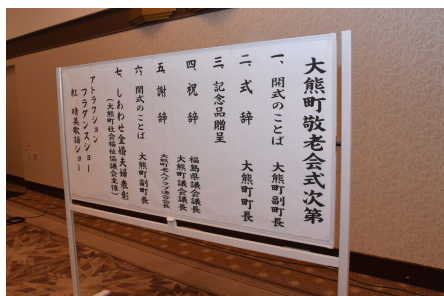 大熊町敬老会式次第
一、開式のことば　大熊町副町長
二、式　辞　大熊町町長
三、記念品贈呈
四、祝　辞　福島県議会議長
大熊町議会議長
五、謝　辞　大熊町老人クラブ連合会長
六、閉式のことば　大熊町副町長
七、しあわせ金婚夫婦表彰
（大熊町社会福祉協議会主催）
アトラクション
フラダンスショー
紅　晴美歌謡ショー